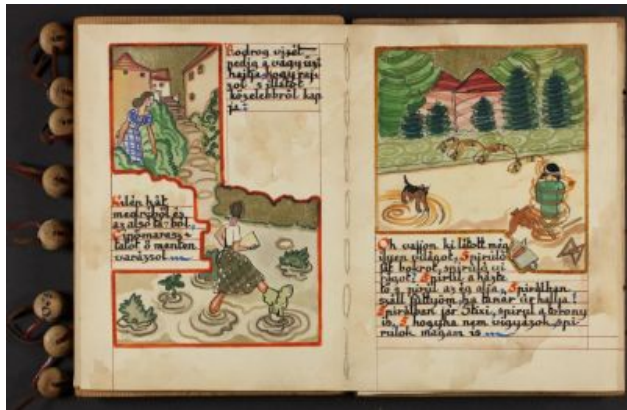 vizét
pedig a vágy űzi
hajtja hogy
s illatot
közelebbről kap
ja:
Kilép hát
medréből és
az alsó
ő menten
varázsol
Oh vajjon ki látott még
ilyen világot, Spiruló
fát bokrot, spiruló vi
rágot? Spirul a házte
tő s pirul az ég alja, Spirálban
száll füttyöm, ha tanár úr hallja!
Spirálban jár Stixi, spirul a torony
is, S hogyha nem vigyázok, spi-
rulok magam is